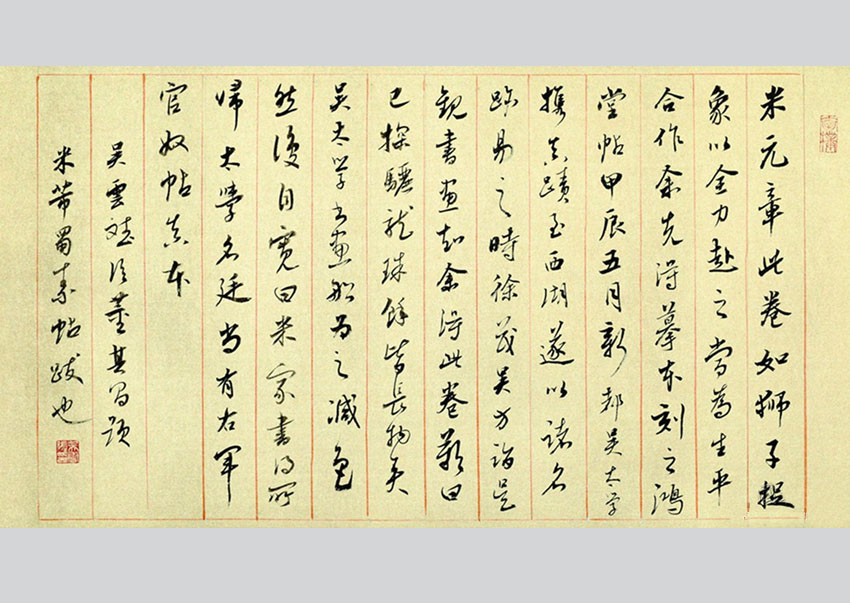 米元章此卷如獅子捉
象以全力赴之當為生平
合作余先得摹本刻之鴻
堂帖甲辰五月新都吳太學
攜真蹟至西湖遂以諸名
跡易之時徐茂吳方詣
觀書畫知余得此卷歎曰
已探驪龍珠餘皆長物矣
吳太學書畫船為之減色
然復自寬曰米家書得所
歸太學名廷尚有右軍
官奴帖真本
吳雲董其昌題
米芾蜀素帖跋也